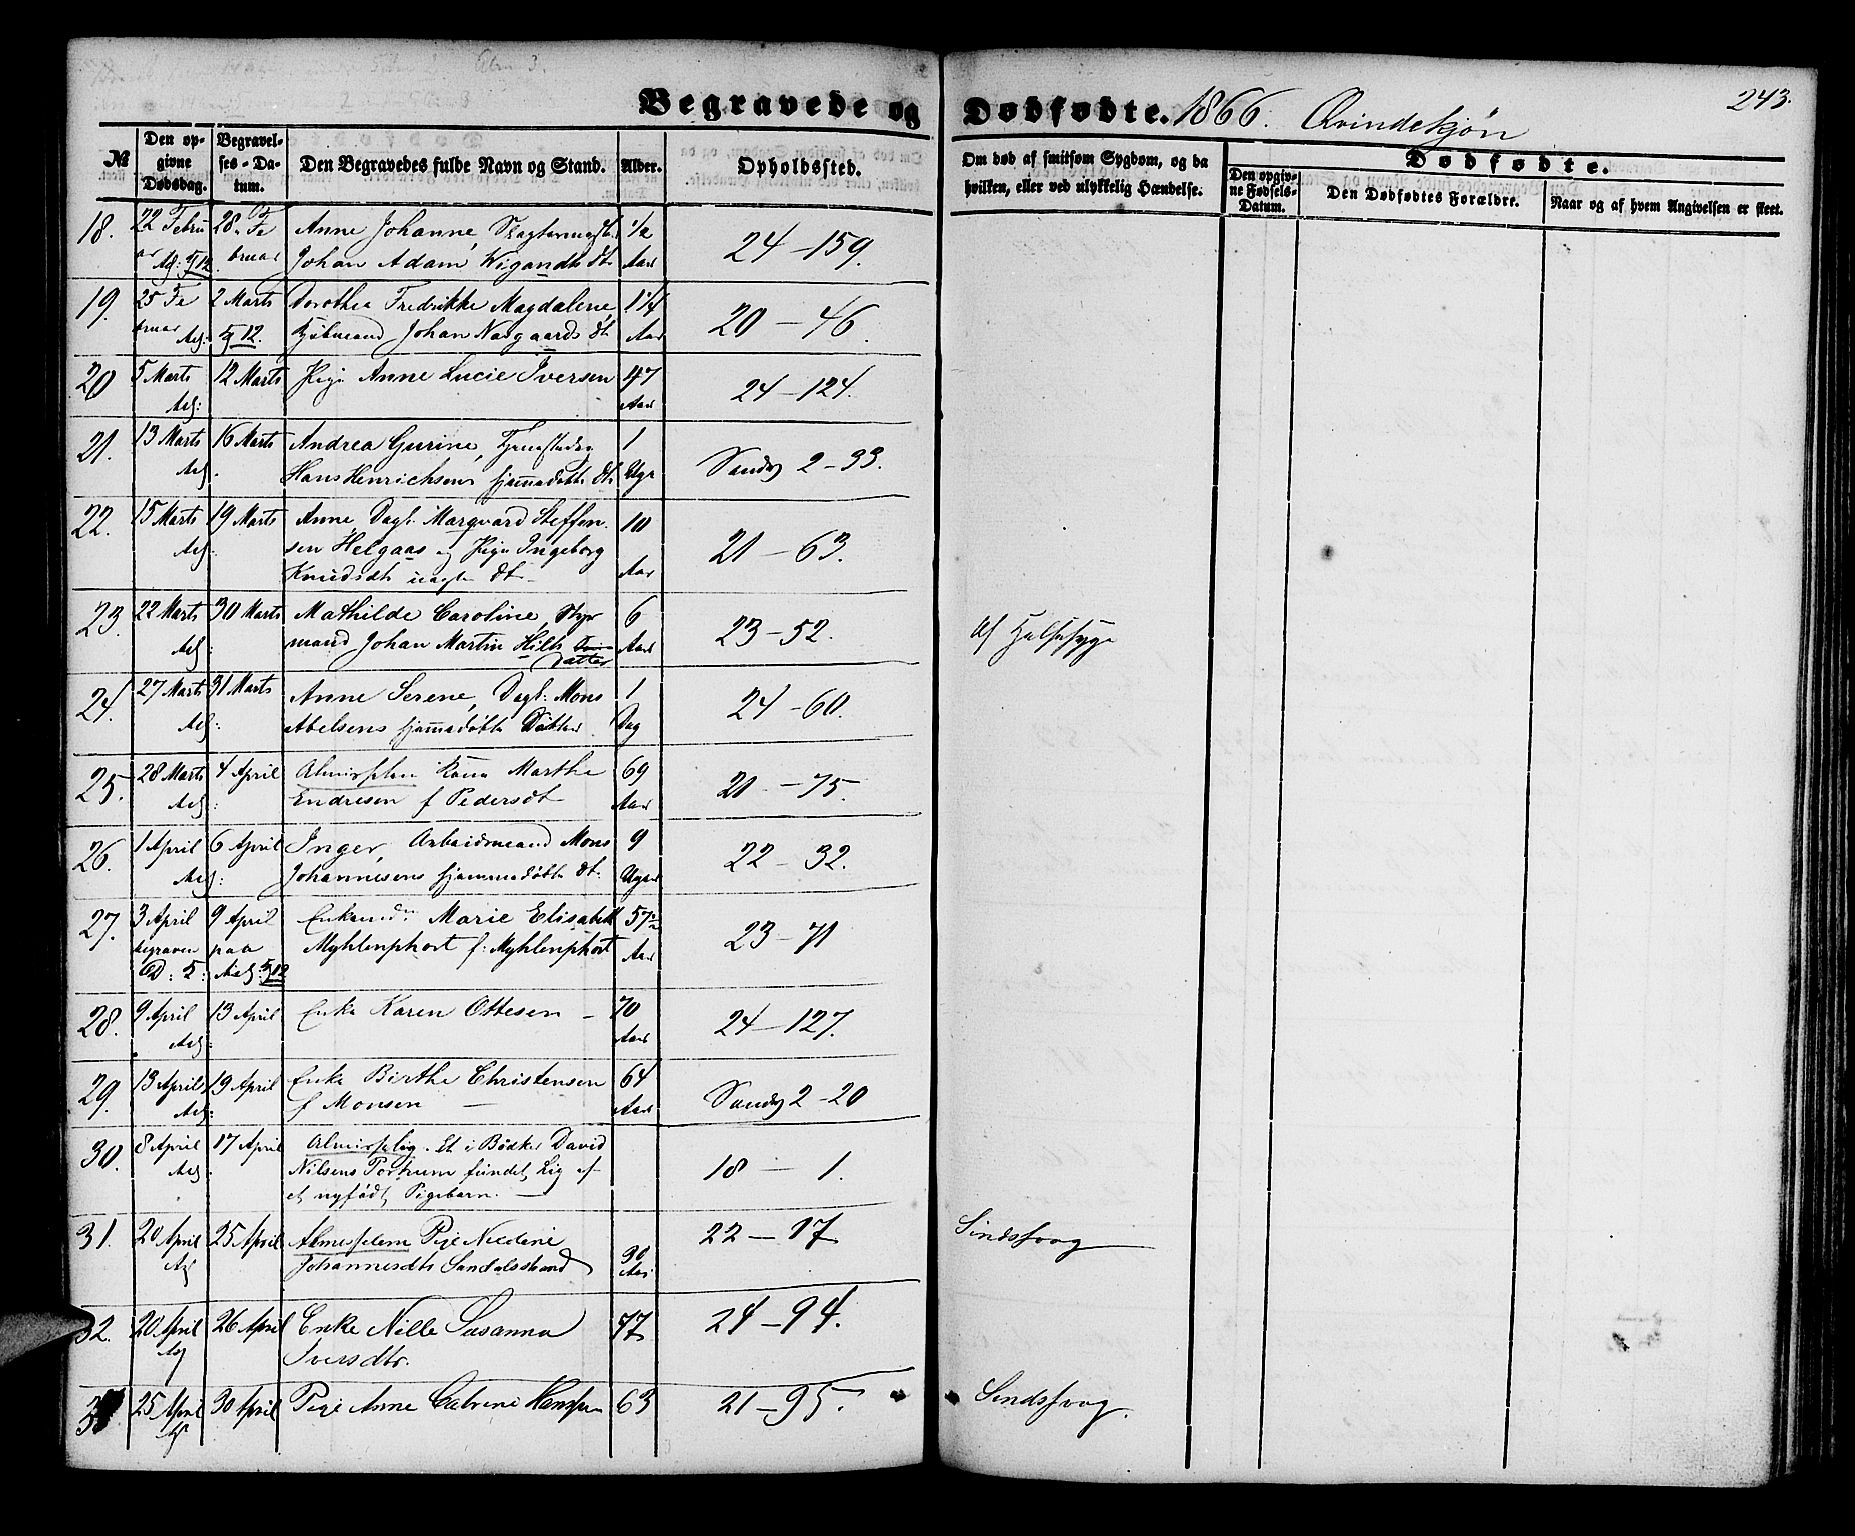 243.
Begravede og Dødfødte. 1866. Qvindekjøn
№
Den opgivne Dødsdag.
Begravelses-Datum.
Den Begravedes fulde Navn og Stand.
Alder.
Opholdssted.
Om død af smitsom Sygdom, og da hvilken, eller ved ulykkelig Hændelse.
Dødfødte.
Den opgivne Fødsels-Datum.
Den Dødfødtes Forældre.
Naar og af hvem Angivelsen er skeet.
18. 22 Febru 28. Fe Anne Johanne, 1/2 24-159.
ar bruar Johan Adam Wigandts dt. Aar
19. 25 Fe 2 Marts Dorothea Fredrikke Magdalene, 1 1/4 20-46.
bruar Kjøbmand Johan Naagaards dt Aar
20 5 Marts 12 Marts Pige Anne Lucie Iversen 47 24-124.
Aar
21. 13 Marts 16 Marts Andrea Gurine, 1 Sandv 2-33.
Hans Henrichsens hjemmedøbte dt. Uge
22. 15 Marts 19 Marts Anne, Dagl. Marqvard Steffen 10 21-63.
sen Helgaas og Pige Ingeborg
Knudsdt uægte dt. Aar
23. 22 Marts 30 Marts Mathilde Caroline, Styr 6 23-52. Af Halssyge
mand Johan Martin Hilts Aar
Datter
24. 27 Marts 31 Marts Anne Serene, Dagl. Mons 1 24-60.
Abelsens hjemmedøbte Datter. Dag
25. 28 Marts 4 April Almisselem Kone Marthe 69 21-75.
Endresen f Pedersdt Aar
26. 1 April 6 April Inger, Arbeidsmand Mons 9 22-32.
Johannesens hjemmedøbte dt. Uger
27. 3 April 9 April Marie Elisabeth 57 23-71
begraven paa Myhlenphort f: Myhlenphort Aar
28. 9 April 13 April Enke Karen Ottesen 70 24-127.
Aar
29. 13 April 19 April Enke Birthe Christensen 64 Sandv 2-20
f Monsen Aar
30. 8 April 17 April Almisselig. Et i Bødker David 18-1.
Nilsens Portrum fundet Lig af
et nyfødt Pigebarn.
31. 20 April 25 April Almisselem Pige Nicoline 22-17 Sindssvag
Johannesdtr Sandalsstrand 30 Aar
32. 20 April 26 April Enke Nille Susanna 77 24-94.
Iversdtr.
33 25 April 30 April Pige Anne Catrine Hanssen 63 21-95. Sindssvag.